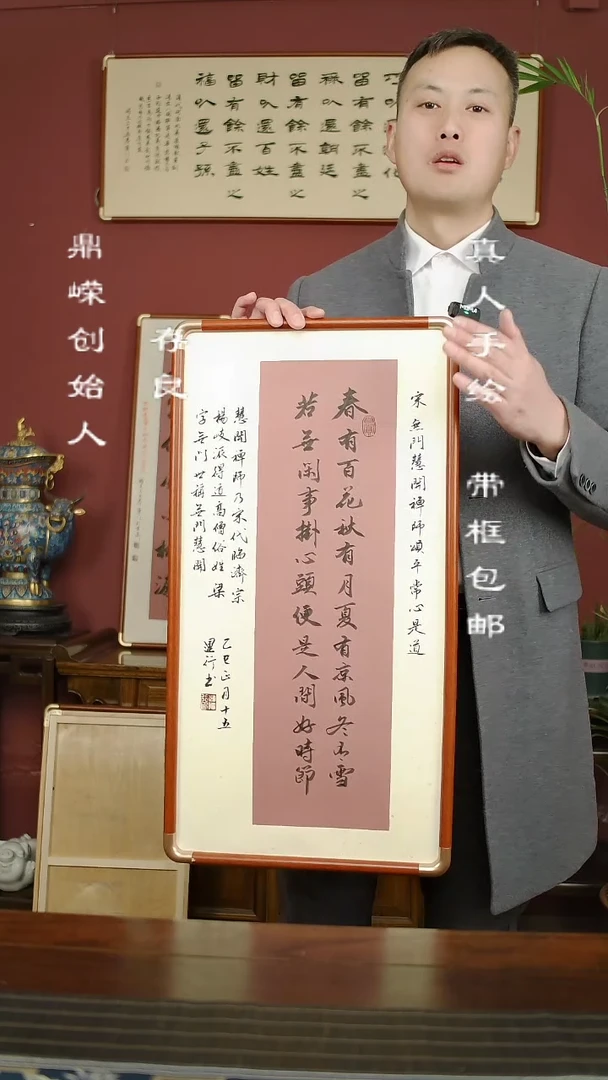 留有餘不盡之
祿以還朝廷
留有餘不盡之
財以還百姓
留有餘不盡之
福以還子孫
真人手绘 带框包邮
鼎嵘创始人
存良
宋無門慧開禪師頌平常心是道
春有百花秋有月夏有凉風冬有雪
若無闲事掛心頭便是人間好時節
慧開禪師乃宋代臨濟宗
楊岐派得道高僧俗姓梁
字無门世稱無門慧開
乙巳正月十五